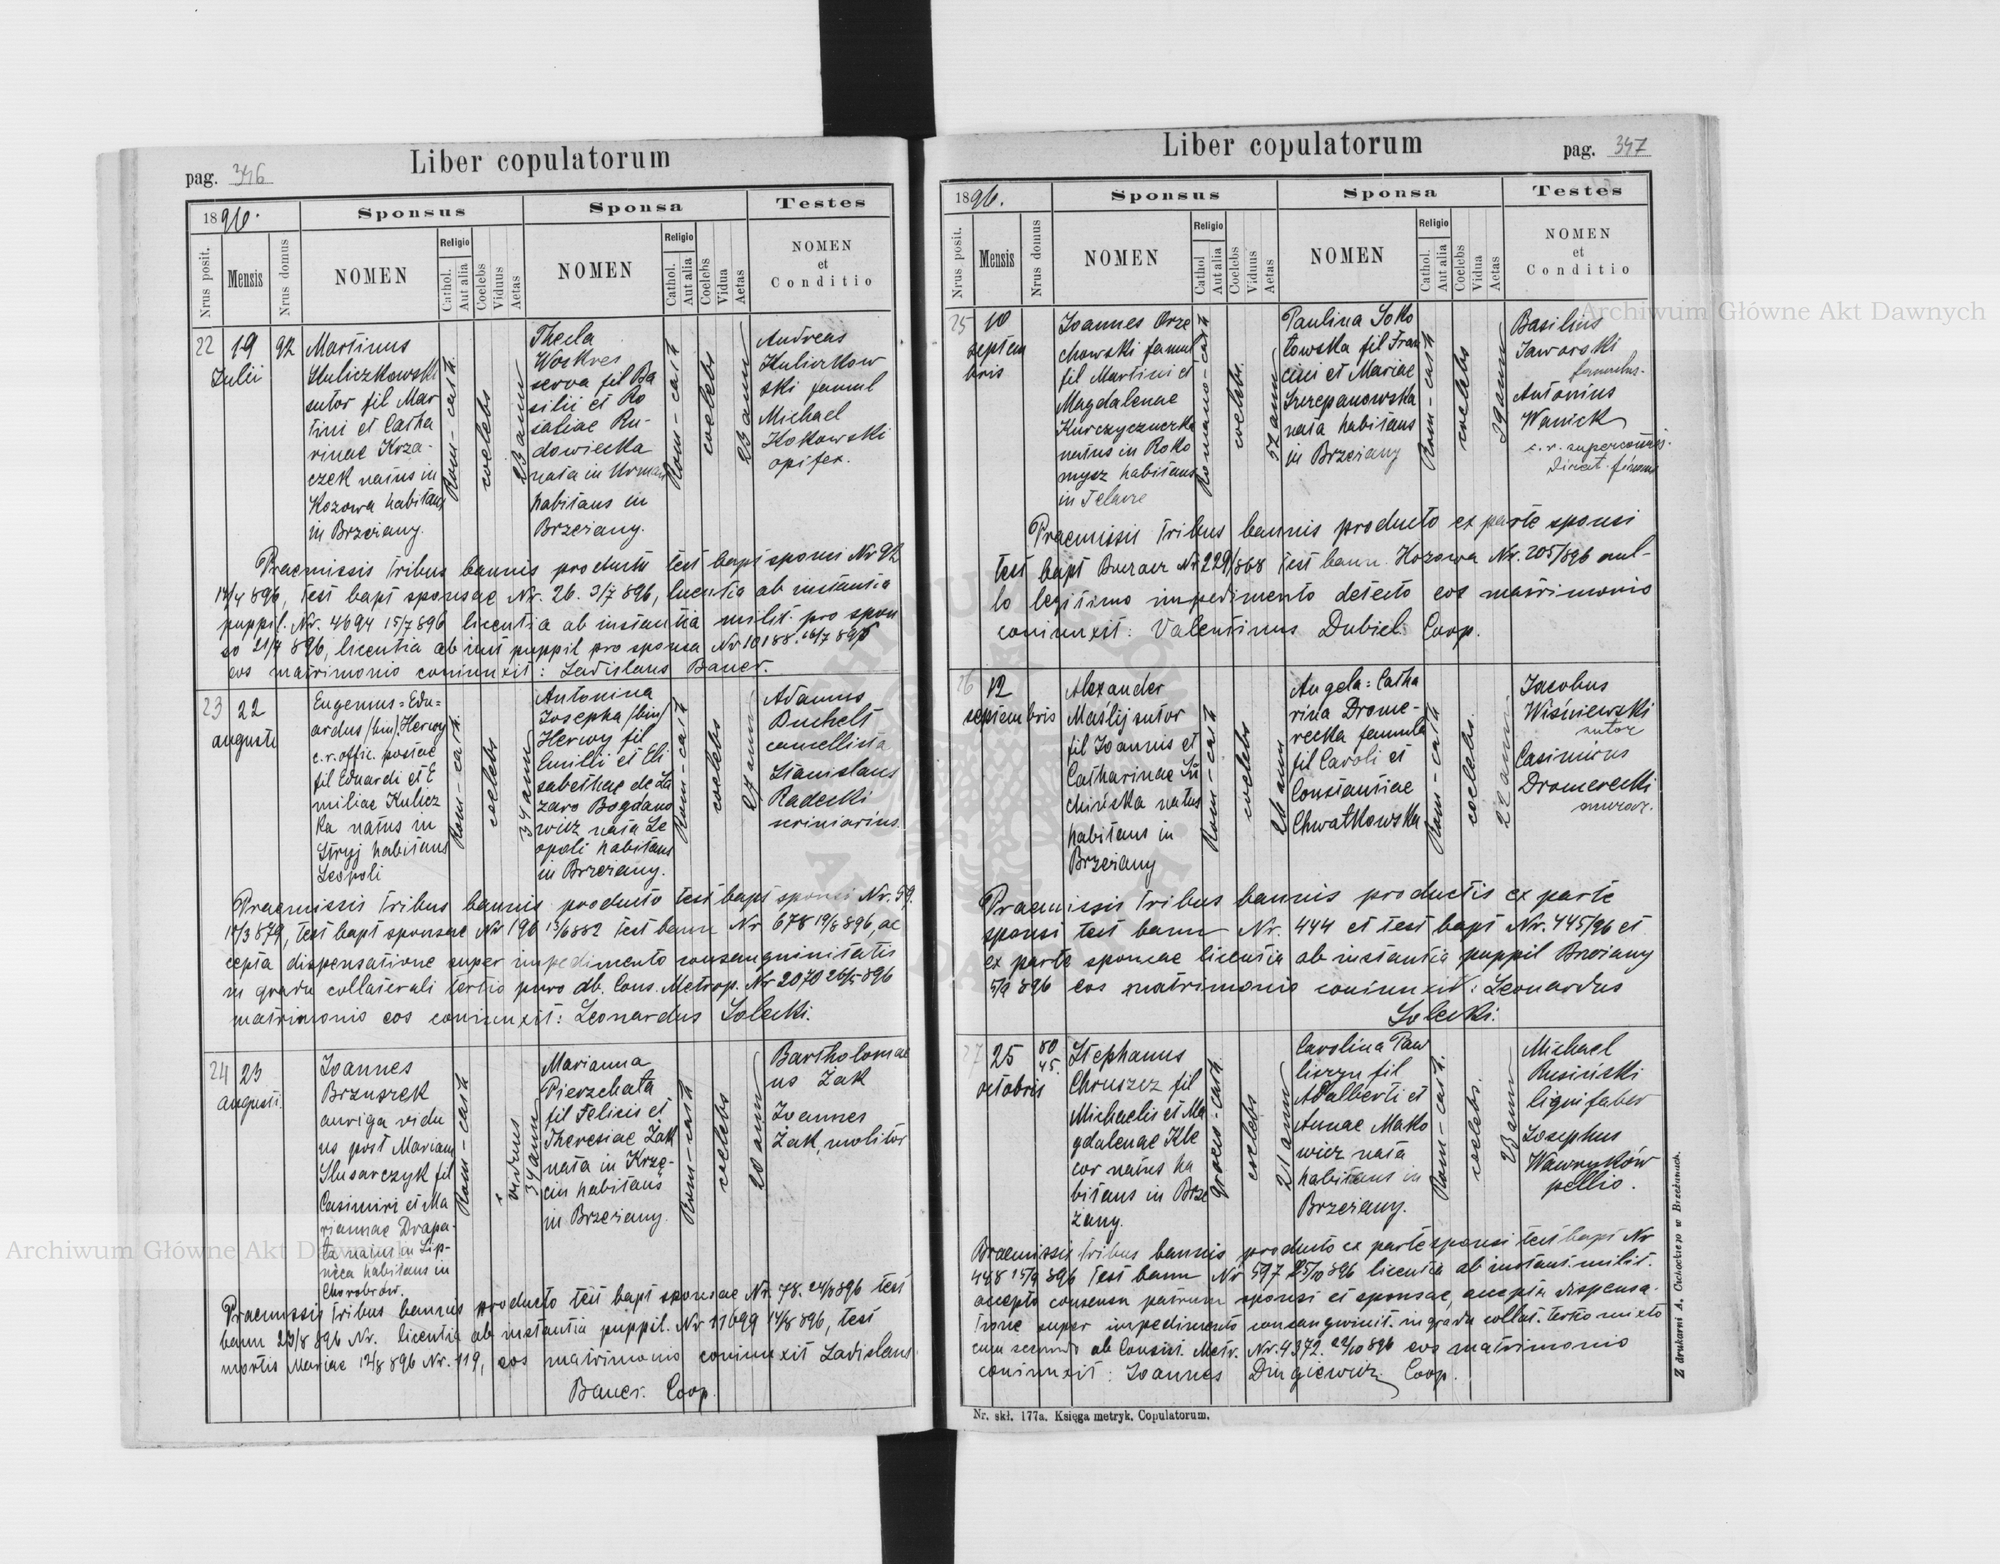 Liber copulatorum
pag. 346
1896.
Sponsus
Sponsa
Testes
Nrus posit.
Mensis
Nrus domus
NOMEN
Religio
Cathol.
Aut alia
Coelebs
Viduus
Aetas
NOMEN
Religio
Cathol.
Aut alia
Coelebs
Vidua
Aetas
NOMEN
et
Conditio
22
19
Julii
92
Martinus
Kuliczkowski
sutor fil Mar
tini et Catha
rinae Krza-
czek natus in
Kozowa habitans
in Brzeżany.
Rom-cath.
coelebs
23 ann
Thecla
Woskres
serva fil Ba
silii et Ro
saliae Ru-
dowiecka
nata in Urman
habitans in
Brzeżany.
Rom-cath
coelebs
23 ann
Andreas
Kulickow
ski famul
Michael
Kokowski
opifex.
Praemissis tribus bannis producto test bapt sponsi Nr 92
896, test bapt sponsae Nr. 26. 3/7 896, licentia ab instantia
puppil. Nr. 4694 15/7 896 licentia ab instantia milit. pro spon
so 21/7 896, licentia ab inst puppil pro sponsa Nr 10188.
eos matrimonio coniunxit: Ladislaus Bauer.
23
22
augusti
Eugenius=Edu=
ardus /bin/ Herwy
c.r. offic. postae
fil Eduardi et E
miliae Kulicz
ka natus in
Stryj habitans
Leopoli
Rom-cath.
coelebs
34 ann
Antonina
Josepha /bin/
Herwy fil
Emilli et Eli
sabethae de La
zaro Bogdano
wicz nata Le
opoli habitans
in Brzeżany.
Rom-cath
coelebs
27 ann
Adamus
Buchelt
cancellista
Stanislaus
Radecki
scriniarius.
Praemissis tribus bannis producto test bapt sponsi Nr. 59.
879, test bapt sponsae Nr 196 15/6 882 test bann Nr 678 19/8 896, ac
cepta dispensatione super impedimento consanguinitatis
in gradu collaterali tertio puro ab. Cons. Metrop. Nr 2070 26/5 896
matrimonio eos coniunxit: Leonardus Solecki.
24
23
augusti.
Joannes
Brzuszek
auriga vidu
us post Mariam
Slusarczyk fil
Casimiri et Ma
riannae Drapa-
ła natus in Lip-
nica habitans in
Chorobrów.
Rom-cath
viduus
34 ann
Marianna
Pierzchała
fil Felicis et
Theresiae Żak
nata in Krzę-
cin habitans
in Brzeżany.
Rom-cath
coelebs
20 ann
Bartholomae
us Żak
Joannes
Żak, molitor
Praemissis tribus bannis producto test bapt sponsae Nr. 78. 24/8 896 test
bann 23/8 896 Nr. licentia ab instantia puppil. Nr 11699 14/8 896, test
mortis Mariae 12/8 896 Nr. 119, eos matrimonio coniunxit Ladislaus
Bauer. Coop.
Liber copulatorum
pag. 347
1896.
Sponsus
Sponsa
Testes
Nrus posit.
Mensis
Nrus domus
NOMEN
Religio
Cathol
Aut alia
Coelebs
Viduus
Aetas
NOMEN
Religio
Cathol.
Aut alia
Coelebs
Vidua
Aetas
NOMEN
et
Conditio
25
10
septem
bris
Joannes Orze
chowski famul
fil Martini et
Magdalenae
Kurczyczuczka
natus in Roko
mysz habitans
in
Romano-cath
coelebs.
52 ann
Paulina Soko
łowska fil Fran
cini et Mariae
Szczepanowska
nata habitans
in Brzeżany
Rom-cath
coelebs
29 ann
Basilius
Jaworski
famulus.
Antonius
Wanick
c. r.
Direct. finans
Praemissis tribus bannis producto ex parte sponsi
test bapt Buczacz Nr 229/868 test bann. Kozowa Nr. 205/896 nul-
lo legitimo impedimento detecto eos matrimonio
coniunxit: Valentinus Dubiel Coop.
26
12
septembris
Alexander
Maślij sutor
fil Joannis et
Catharinae Su
chińska natus
habitans in
Brzeżany
Rom-cath
coelebs
26 ann
Angela=Catha
rina Drome-
recka famula
fil Caroli et
Constantiae
Chwatkowska
Rom-cath
coelebs.
22 annis
Jacobus
Wiśniewski
sutor
Casimirus
Dromerecki
murar.
Praemissis tribus bannis productis ex parte
sponsi test bann Nr. 444 et test bapt Nr. 445/96 et
ex parte sponsae licentia ab instantia puppil Brzeżany
5/9 896 eos matrimonio coniunxit: Leonardus
Solecki.
27
25
octobris
80
45.
Stephanus
Chruszcz fil
Michaelis et Ma
gdalenae Kle
cor natus ha
bitans in Brze
żany.
graeco-cath.
coelebs
21 ann
Carolina Paw
liszyn fil
Adalberti et
Annae Mako
wicz nata
habitans in
Brzeżany.
Rom-cath.
coelebs.
23 ann
Michael
Rusiński
lignifaber
Josephus
Wawryków
pellio.
Praemissis tribus bannis producto ex parte sponsi test bapt Nr
448 15/9 896 test bann Nr 597 25/10 896 licentia ab instant. milit.
accepto consensu patrum sponsi et sponsae, accepta dispensa-
tione super impedimento consangwinit. in gradu collat. tertio mixto
cum secundo ab Consist. Metr. Nr. 4372. 22/10 896 eos matrimonio
coniunxit: Joannes Dugiewicz Coop.
Nr. skł. 177a. Księga metryk. Copulatorum.
Z drukarni A. Cichockiego w Brzeżanach.
Archiwum Główne Akt Dawnych
Archiwum Główne Akt Dawnych